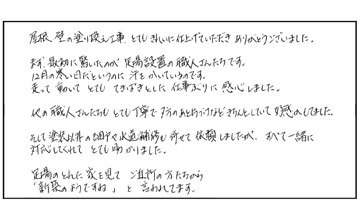 屋根、壁の塗り換え工事 とてもきれいに仕上げていただき ありがとうございました。
まず最初に驚いたのが 足場設置の職人さんたちです。
12月の寒い日だというのに 汗をかいているのです。
走って動いて とても てきぱきとした 仕事ぶりに 感心しました。
他の職人さんたちも とても丁寧で あとかたづけなどきちんとしていて 好感がもてました。
そして塗装以外の 水道補修も 併せて 依頼しましたが、すべて一緒に
対応してくれて とても 助かりました。
足場のとれた 家を見て ご近所の方たちから
「新築のようですね」と 言われてます。